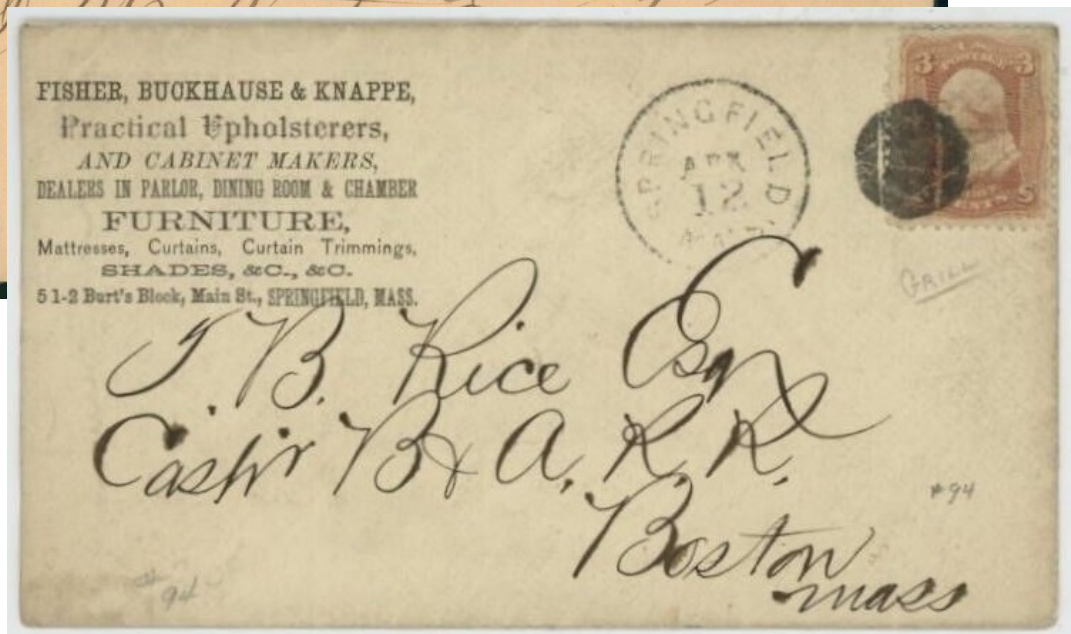 FISHER, BUCKHAUSE & KNAPPE,
Practical Upholsterers,
AND CABINET MAKERS,
DEALERS IN PARLOR, DINING ROOM & CHAMBER
FURNITURE,
Mattresses, Curtains, Curtain Trimmings,
SHADES, &C., &C.
5 1-2 Burt's Block, Main St., SPRINGFIELD, MASS.
SPRINGFIELD
APR
12
3 3
U.S.
POSTAGE
CENTS
GRILL
J. B. Rice Esq
Cash'r B & A. R. R.
Boston
Mass
#94
94